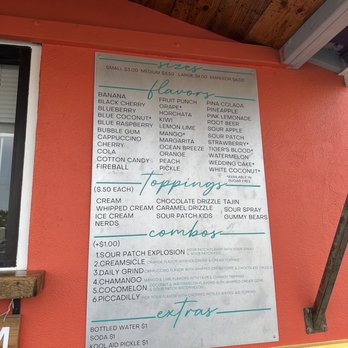 sizes
SMALL $3.00 MEDIUM $3.50 LARGE $4.00 EMPEROR $6.00
flavors
BANANA
BLACK CHERRY
BLUEBERRY
BLUE COCONUT*
BLUE RASPBERRY
BUBBLE GUM
CAPPUCCINO
CHERRY
COLA
COTTON CANDY
FIREBALL
FRUIT PUNCH
GRAPE*
HORCHATA
KIWI
LEMON LIME
MANGO*
MARGARITA
OCEAN BREEZE
ORANGE
PEACH
PICKLE
PINA COLADA
PINEAPPLE
PINK LEMONADE
ROOT BEER
SOUR APPLE
SOUR PATCH
STRAWBERRY*
TIGER'S BLOOD*
WATERMELON*
WEDDING CAKE*
WHITE COCONUT*
*AVAILABLE IN
SUGAR FREE
toppings
($.50 EACH)
CREAM
WHIPPED CREAM
ICE CREAM
NERDS
CHOCOLATE DRIZZLE
CARAMEL DRIZZLE
SOUR PATCH KIDS
TAJIN
SOUR SPRAY
GUMMY BEARS
combos
(+$1.00)
1.SOUR PATCH EXPLOSION
2.CREAMSICLE
3.DAILY GRIND
4.CHAMANGO
5.COCOMELON
6.PICCADILLY
extras
BOTTLED WATER $1
SODA $1
KOOL AID PICKLE $1